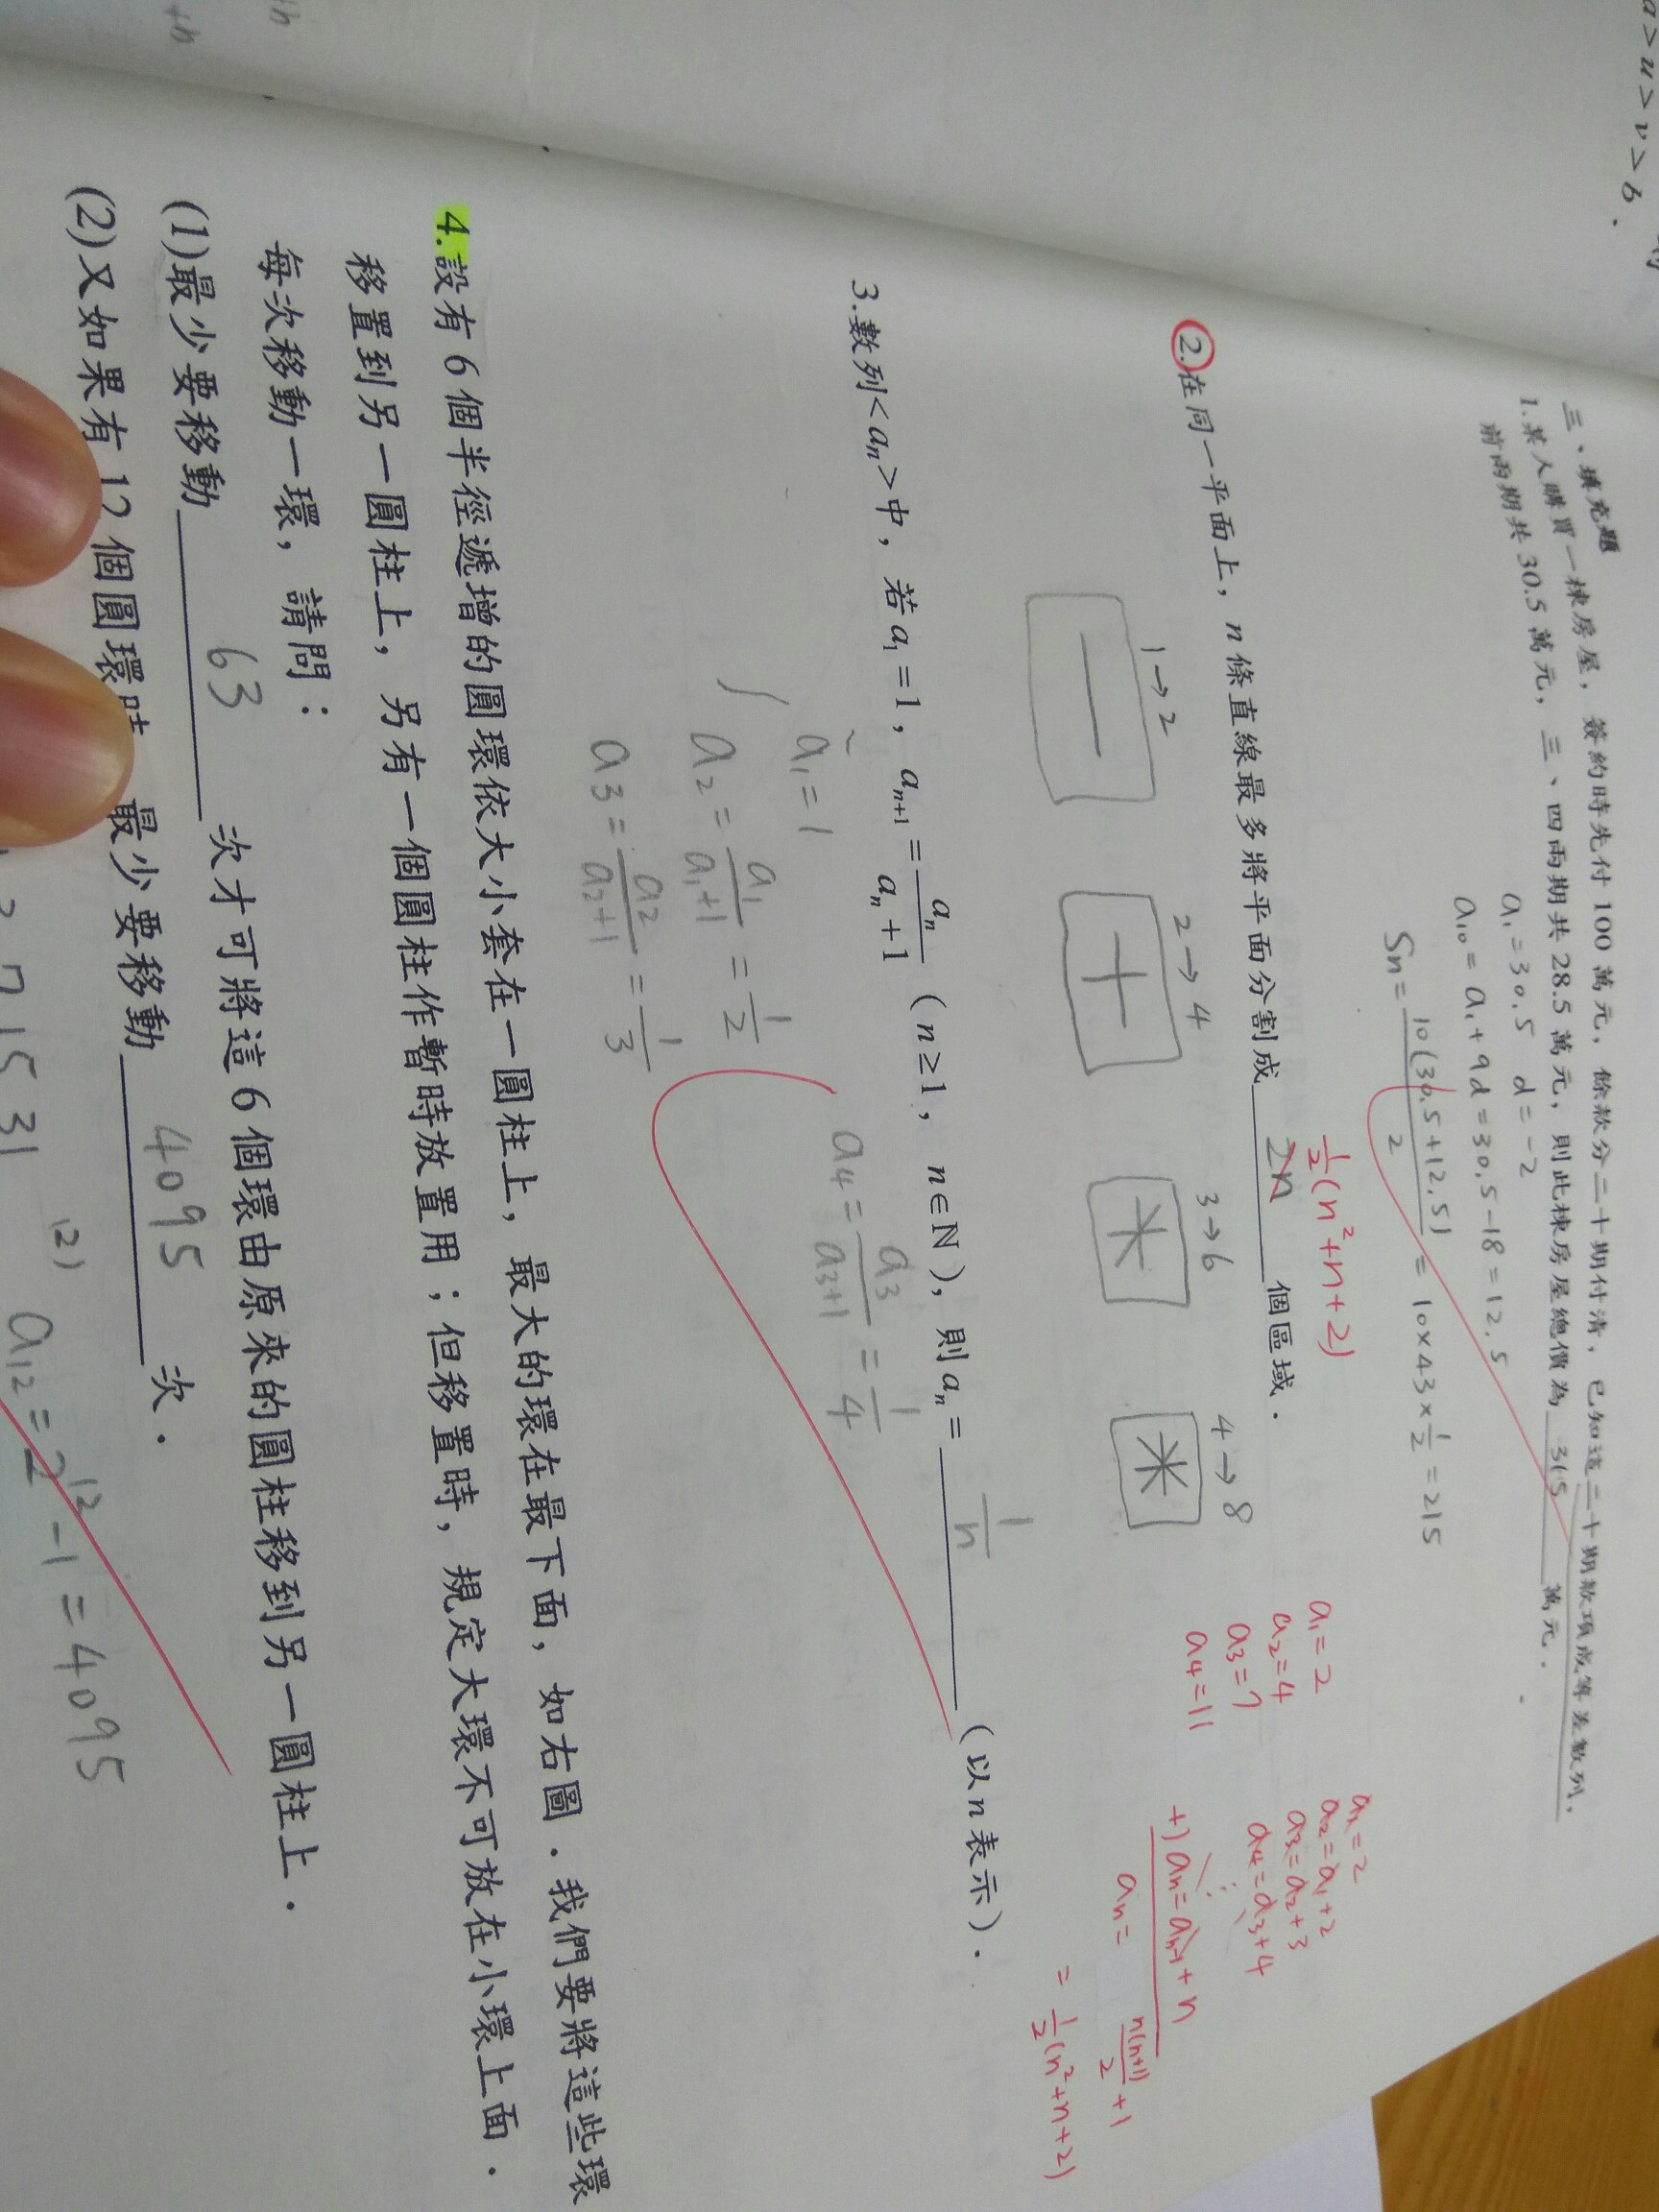 a > u > v > b .
三、填充題
1.某人購買一棟房屋，簽約時先付 100 萬元，餘款分二十期付清，已知這二十期款項成等差數列，
前兩期共 30.5 萬元，三、四兩期共 28.5 萬元，則此棟房屋總價為 315 萬元．
a₁=30.5 d=-2
a₁₀=a₁+9d=30.5-18=12.5
Sn=10(30.5+12.5)/2=10×43×1/2=215
1/2(n²+n+2)
②.在同一平面上，n 條直線最多將平面分割成 2n 個區域．
1→2
2→4
3→6
4→8
a₁=2
a₂=4
a₃=7
a₄=11
a₁=2
a₂=a₁+2
a₃=a₂+3
a₄=a₃+4
⋮
+) aₙ=aₙ₋₁+n
aₙ= n(n+1)/2 +1
= 1/2(n²+n+2)
3.數列<aₙ>中，若 a₁=1，aₙ₊₁=aₙ/(aₙ+1)（n≥1，n∈N），則 aₙ= 1/n （以 n 表示）．
a₁=1
a₂=a₁/(a₁+1)=1/2
a₃=a₂/(a₂+1)=1/3
a₄=a₃/(a₃+1)=1/4
4.設有 6 個半徑遞增的圓環依大小套在一圓柱上，最大的環在最下面，如右圖．我們要將這些環
移置到另一圓柱上，另有一個圓柱作暫時放置用；但移置時，規定大環不可放在小環上面．
每次移動一環，請問：
(1)最少要移動 63 次才可將這 6 個環由原來的圓柱移到另一圓柱上．
(2)又如果有 12 個圓環時 最少要移動 4095 次．
12)
a₁₂=2¹²-1=4095
3 7 15 31